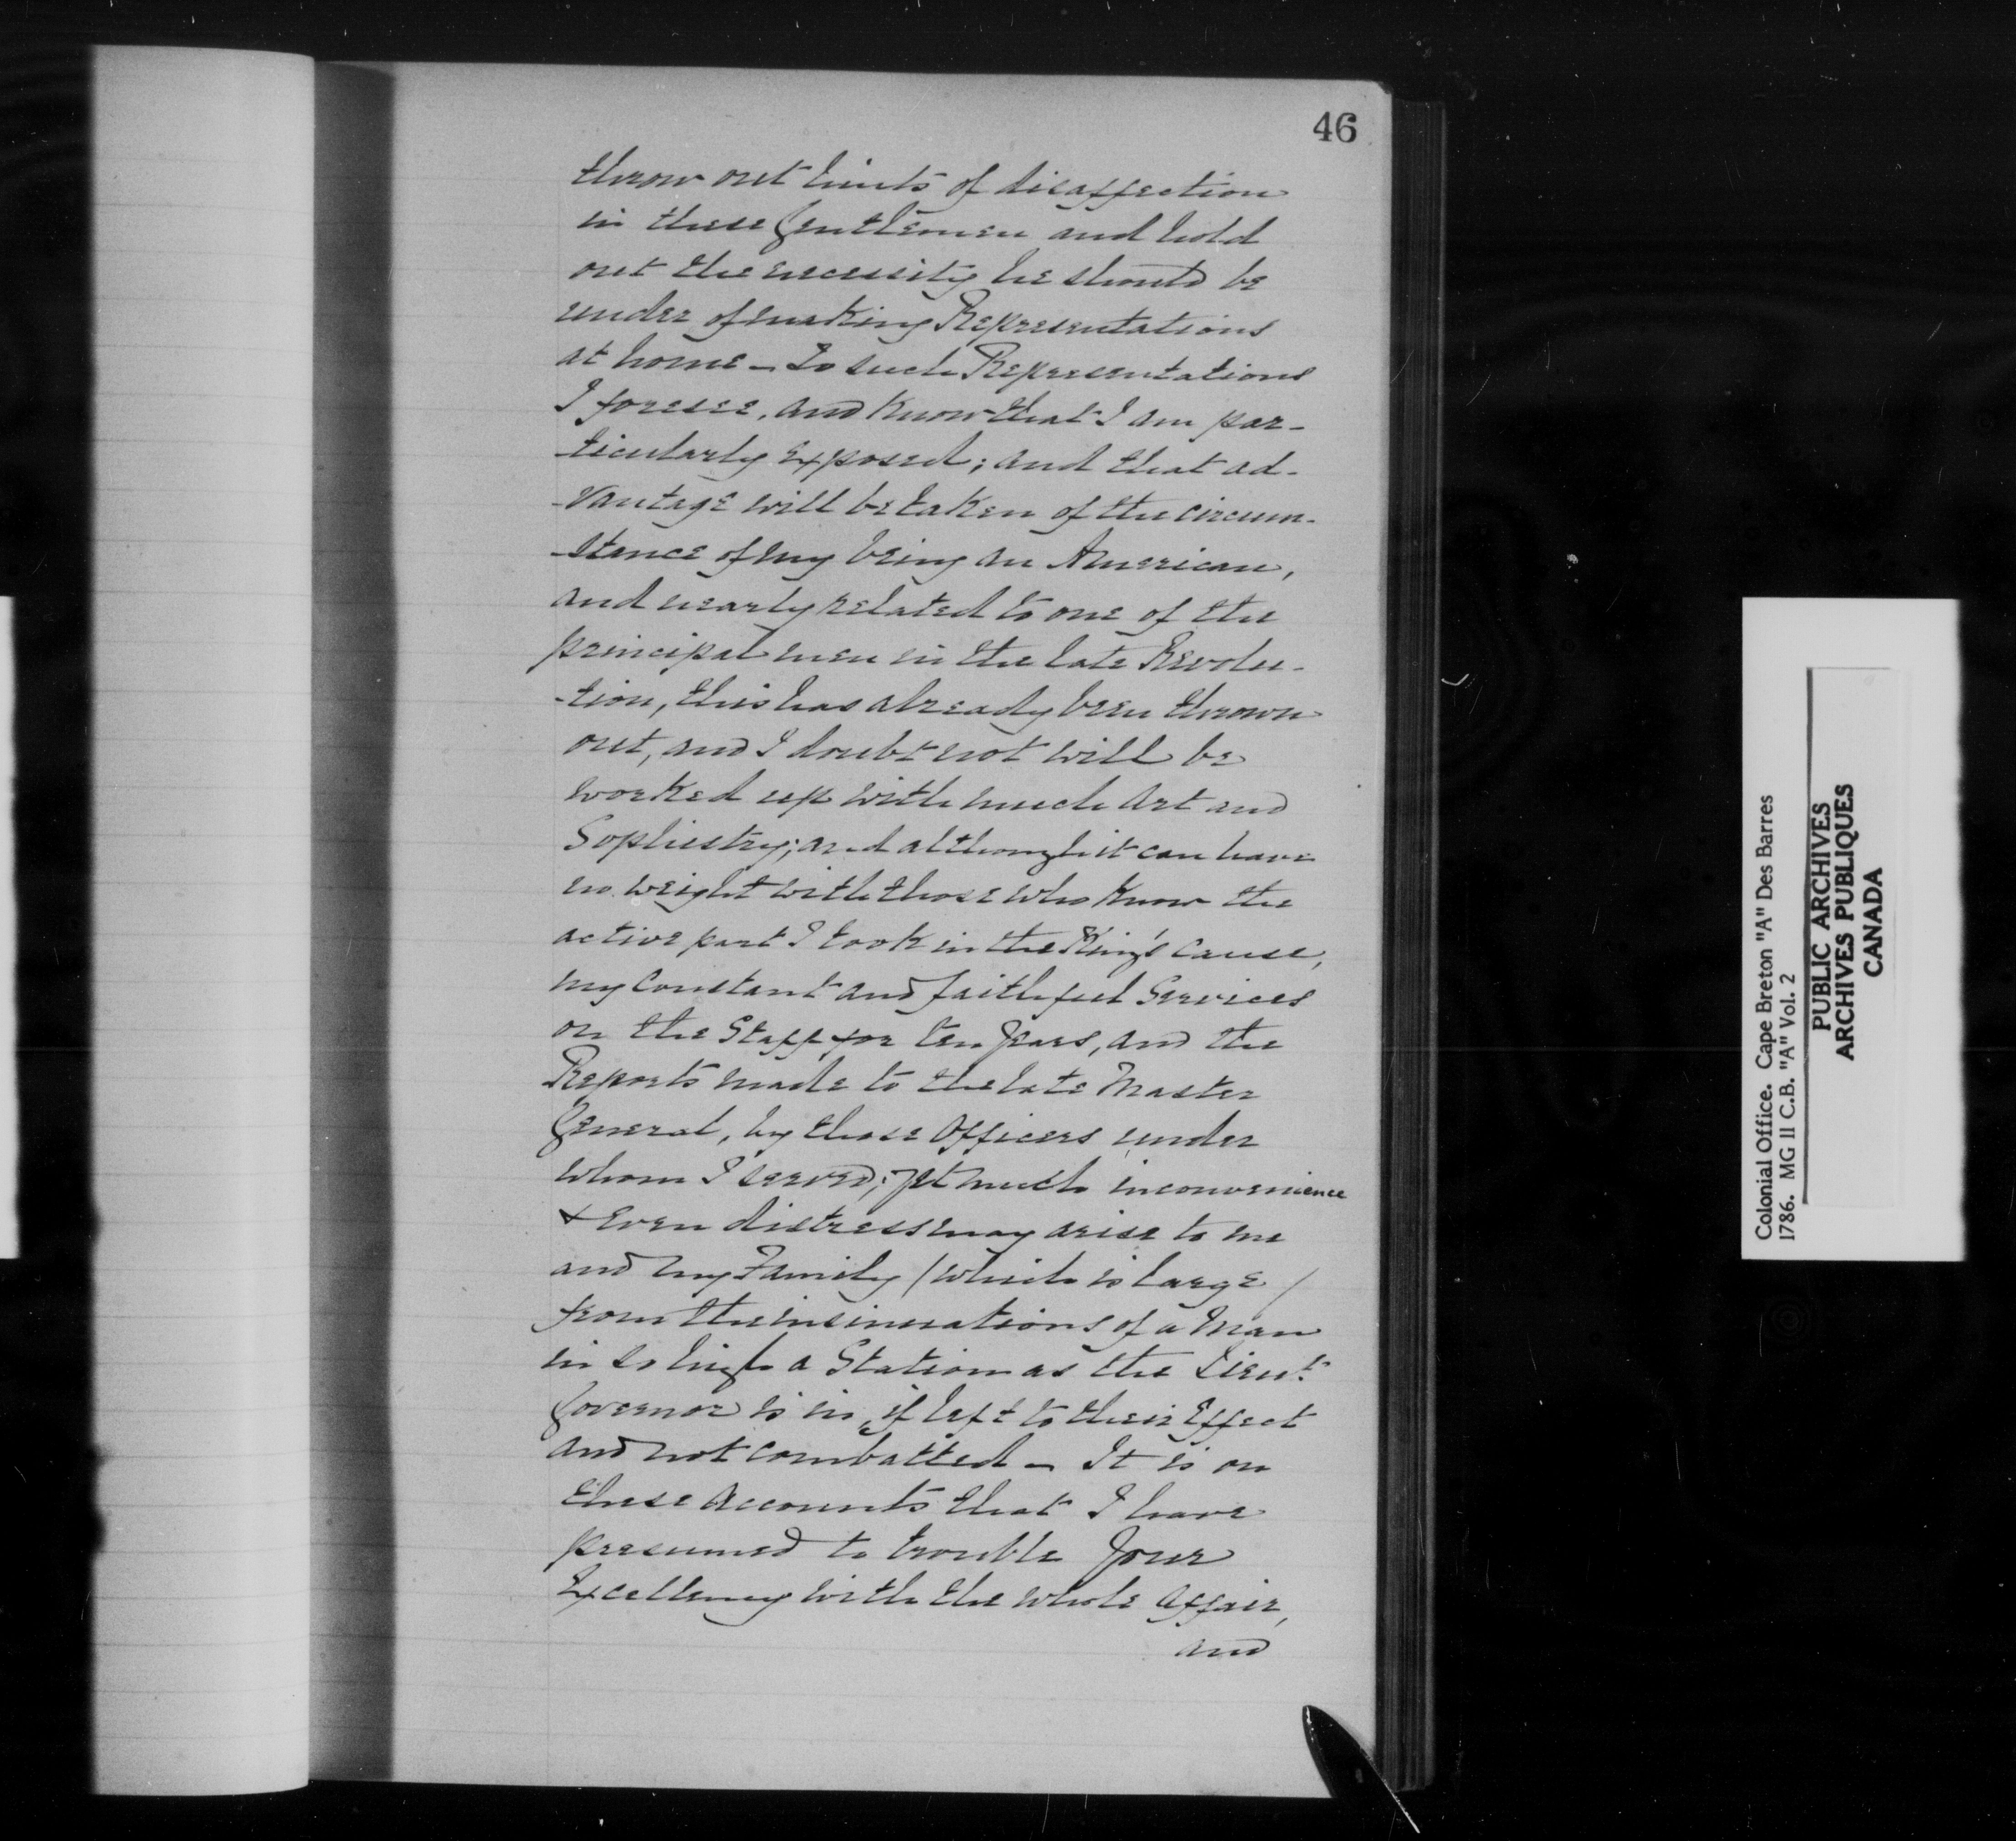 46
throw out hints of disaffection
in these Gentlemen and hold
out the necessity he should be
under of making Representations
at home – To such Representations
I foresee, and know that I am par-
-ticularly exposed; and that ad-
-vantage will be taken of the circum-
-stance of my being an American,
and nearly related to one of the
principal men in the late Revolu-
-tion, this has already been thrown
out, and I doubt not will be
worked up with much Art and
Sophistry; and although it can have
no weight with those who know the
active part I took in the King's cause,
my Constant and faithful Services
on the Staff for ten Years, and the
Reports made to the late Master
General, by those Officers under
whom I served; yet much inconvenience
& Even distress may arise to me
and my Family / which is large /
from the insinuations of a Man
in so high a Station as the Lieut.
Governor is in, if left to their Effect
and not combatted – It is on
these Accounts that I have
presumed to trouble Your
Excellency with the whole Affair,
and
Colonial Office. Cape Breton "A" Des Barres
1786. MG 11 C.B. "A" Vol. 2
PUBLIC ARCHIVES
ARCHIVES PUBLIQUES
CANADA